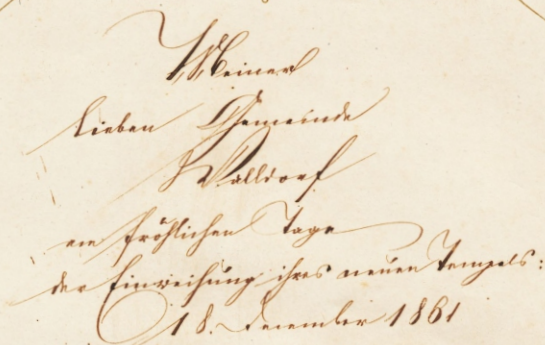 Meiner
lieben Gemeinde
Walldorf
am fröhlichen Tage
der Einweihung ihres neuen Tempels:
18. December 1861